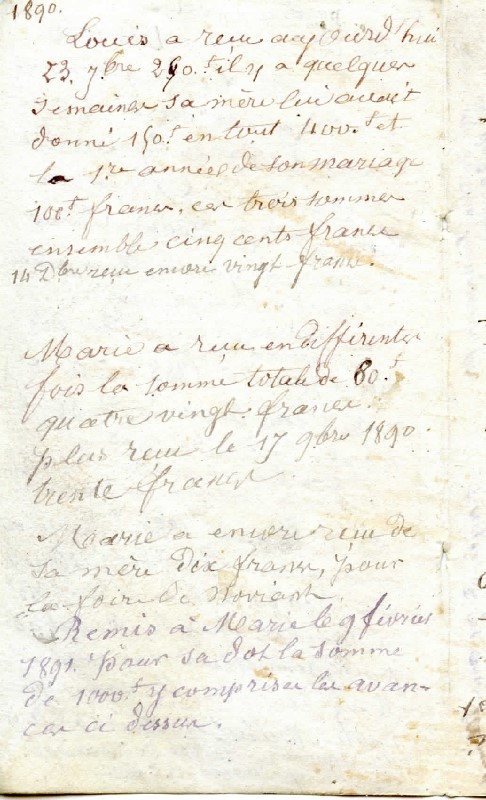 1890.
Louis a reçu aujourd'hui
23. 7bre 250.f il y a quelques
semaines sa mère lui avait
donné 150.f en tout 400.f et
la 1re année de son mariage
100f francs. ces trois sommes
ensemble cinq cents francs
14 Dbre reçu encore vingt francs.
Marie a reçu en différentes
fois la somme totale de 80.f
quatre vingt francs.
plus reçu le 17 9bre 1890
trente francs
Marie a encore reçu de
sa mère dix francs, pour
la foire de Noviant.
Remis à Marie le 9 février
1891. pour sa dot la somme
de 1000.f y comprises les avan-
ces ci dessus.